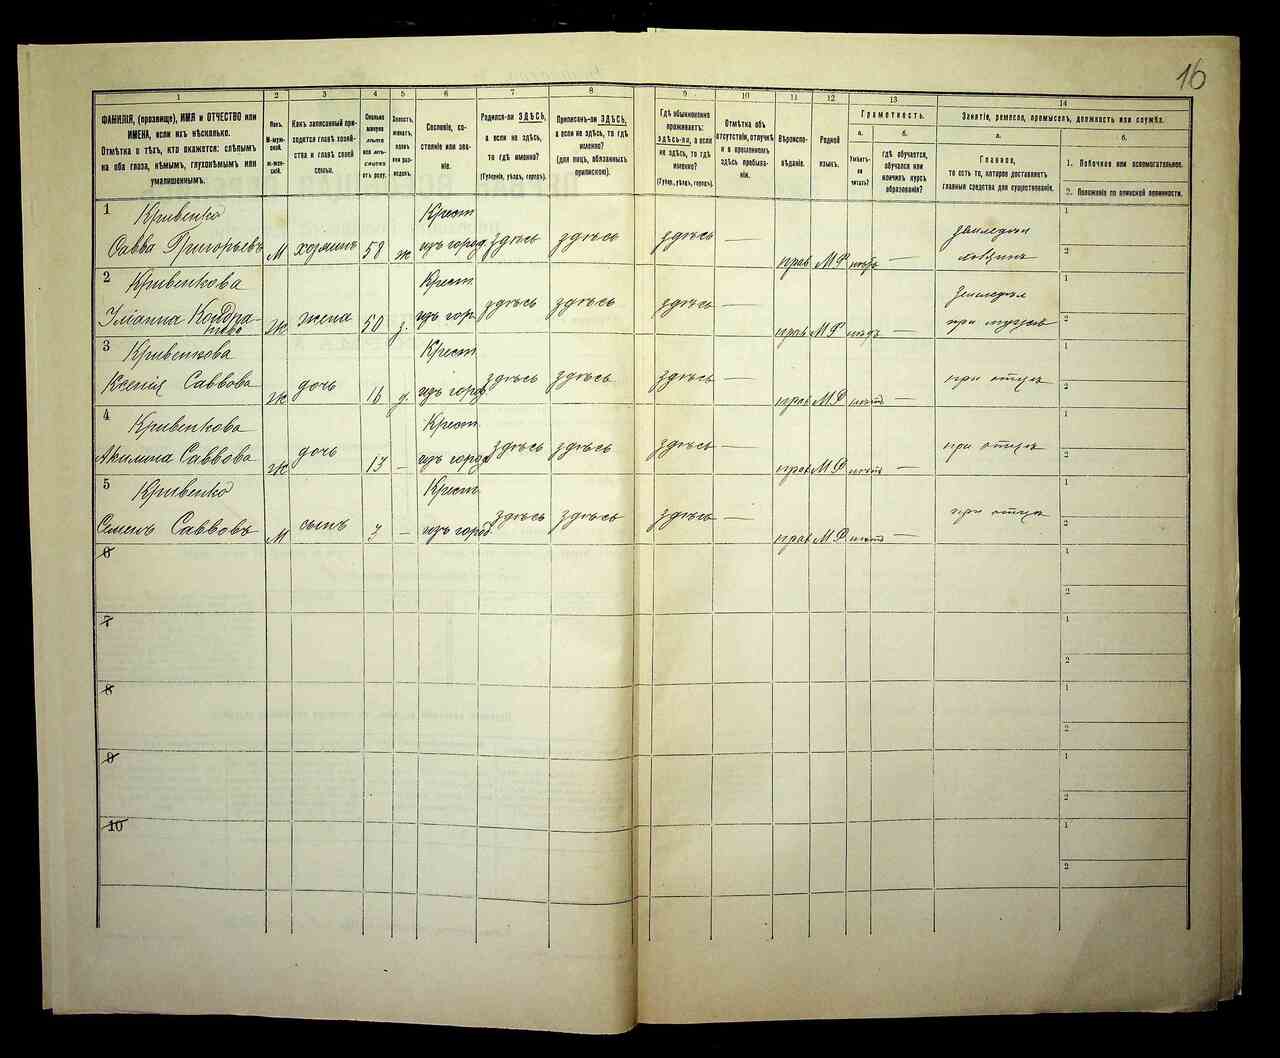 16
1
2
3
4
5
6
7
8
9
10
11
12
13
14
ФАМИЛІЯ, (прозвище), ИМЯ и ОТЧЕСТВО или
ИМЕНА, если ихъ нѣсколько.
Отмѣтка о тѣхъ, кто окажется: слѣпымъ
на оба глаза, нѣмымъ, глухонѣмымъ или
умалишеннымъ.
Полъ.
М-муж-
ской.
Ж-жен-
скій.
Какъ записанный при-
ходится главѣ хозяй-
ства и главѣ своей
семьи.
Сколько
минуло
лѣтъ
или мѣ-
сяцевъ
отъ роду.
Холостъ,
женатъ,
вдовъ
или раз-
веденъ.
Сословіе, со-
стояніе или зва-
ніе.
Родился-ли ЗДѢСЬ,
а если не здѣсь,
то гдѣ именно?
(Губернія, уѣздъ, городъ).
Приписанъ-ли ЗДѢСЬ,
а если не здѣсь, то гдѣ
именно?
(для лицъ, обязанныхъ
припискою).
Гдѣ обыкновенно
проживаетъ:
здѣсь-ли, а если
не здѣсь, то гдѣ
именно?
(Губер., уѣздъ, городъ).
Отмѣтка объ
отсутствіи, отлучкѣ
и о временномъ
здѣсь пребыва-
ніи.
Вѣроиспо-
вѣданіе.
Родной
языкъ.
Грамотность.
а.
б.
Умѣетъ-
ли
читать?
гдѣ обучается,
обучался или
кончилъ курсъ
образованія?
Занятіе, ремесло, промыселъ, должность или служба.
а.
б.
Главное,
то есть то, которое доставляетъ
главныя средства для существованія.
1. Побочное или вспомогательное.
2. Положеніе по воинской повинности.
1
Кривенко
Савва Григорьевъ М хозяинъ 58 ж
Крест.
изъ город. здѣсь здѣсь здѣсь — прав М.Р. —
1
2
2
Кривенкова
Кондра-
Ж жена 50 з.
Крест.
изъ гор. здѣсь здѣсь здѣсь — прав М.Р. нѣтъ —
при мужѣ
1
2
3
Кривенкова
Ксенія Саввова Ж дочь 16 д.
Крест.
изъ город. здѣсь здѣсь здѣсь — прав М.Р. нѣтъ —
при отцѣ
1
2
4
Кривенкова
Акилина Саввова Ж дочь 13 —
Крест.
изъ город. здѣсь здѣсь здѣсь — прав М.Р. нѣтъ —
при отцѣ
1
2
5
Кривенко
Семенъ Саввовъ М сынъ 3 —
Крест.
изъ город. здѣсь здѣсь здѣсь — прав М.Р. нѣтъ —
при отцѣ
1
2
6
1
2
7
1
2
8
1
2
9
1
2
10
1
2